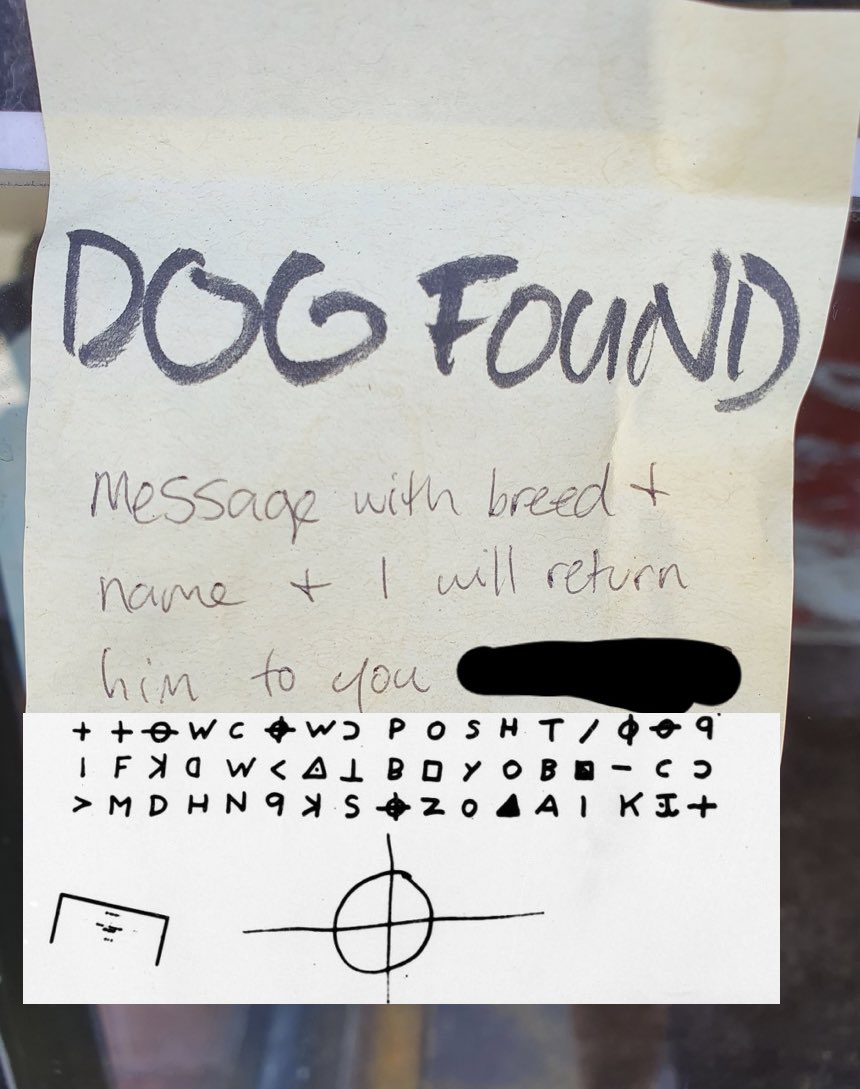 DOG FOUND
Message with breed +
name + I will return
him to you
+ + ⊖ W C ⌖ W Ɔ P O S H T / Φ ⊖ ꟼ
I F ꓘ ᗡ W < ◬ ⊥ B □ Y O B ▣ - C Ɔ
> M D H N ꟼ ꓘ S ⌖ Z O ▲ A I K +